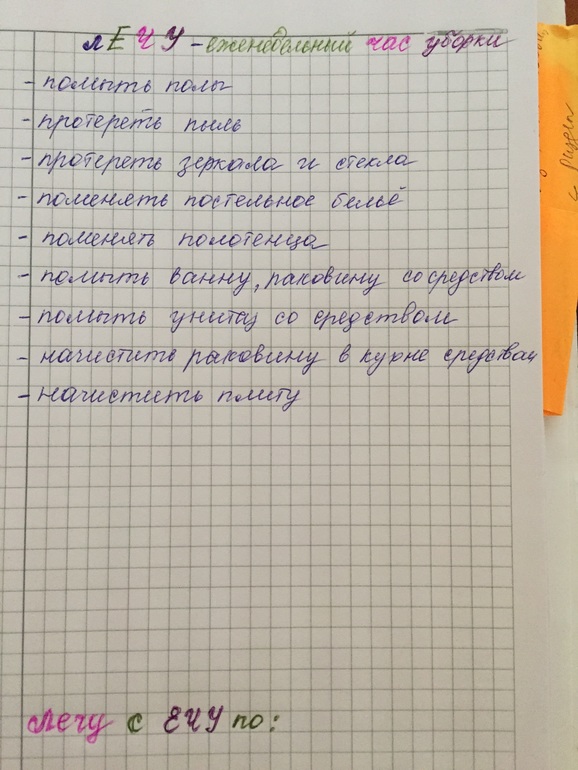 лЕЧУ - еженедельный час уборки
- помыть полы
- протереть пыль
- протереть зеркала и стекла
- поменять постельное бельё
- поменять полотенца
- помыть ванну, раковину со средством
- помыть унитаз со средством
- начистить раковину в кухне средствам
- начистить плиту
Лечу с ЕЧУ по: